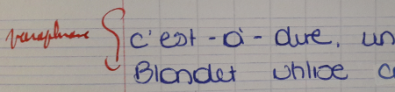 paraphrase
c'est-à-dire, un
Blondet utilise c